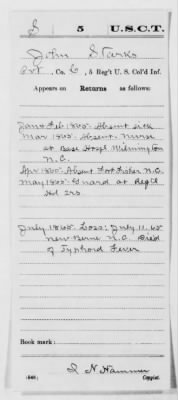 S | 5 | U.S.C.T.
John Starks
Pvt, Co. C, 5 Reg't U. S. Col'd Inf.
Appears on Returns as follows:
Jan & Feb 1865 Absent sick
Mar 1865 Absent Nurse
at Base Hospl Wilmington
N.C.
Apr 1865 Absent Fort Fisher N.C.
May 1865 Guard at Regtl
Hd Qrs
July 1865 Loss: July 11, 65
New Berne N.C. Died
of Typhoid Fever
Book mark:
(546) S N Hammer
Copyist.